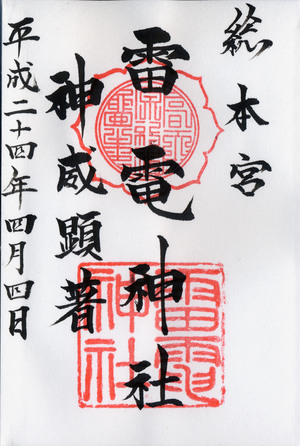 総本宮
雷電神社
神威顕著
平成二十四年四月四日
雷電
神社